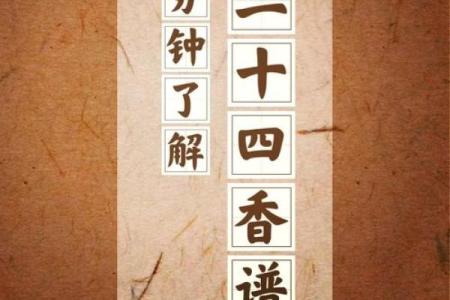 分钟了解
二十四香谱